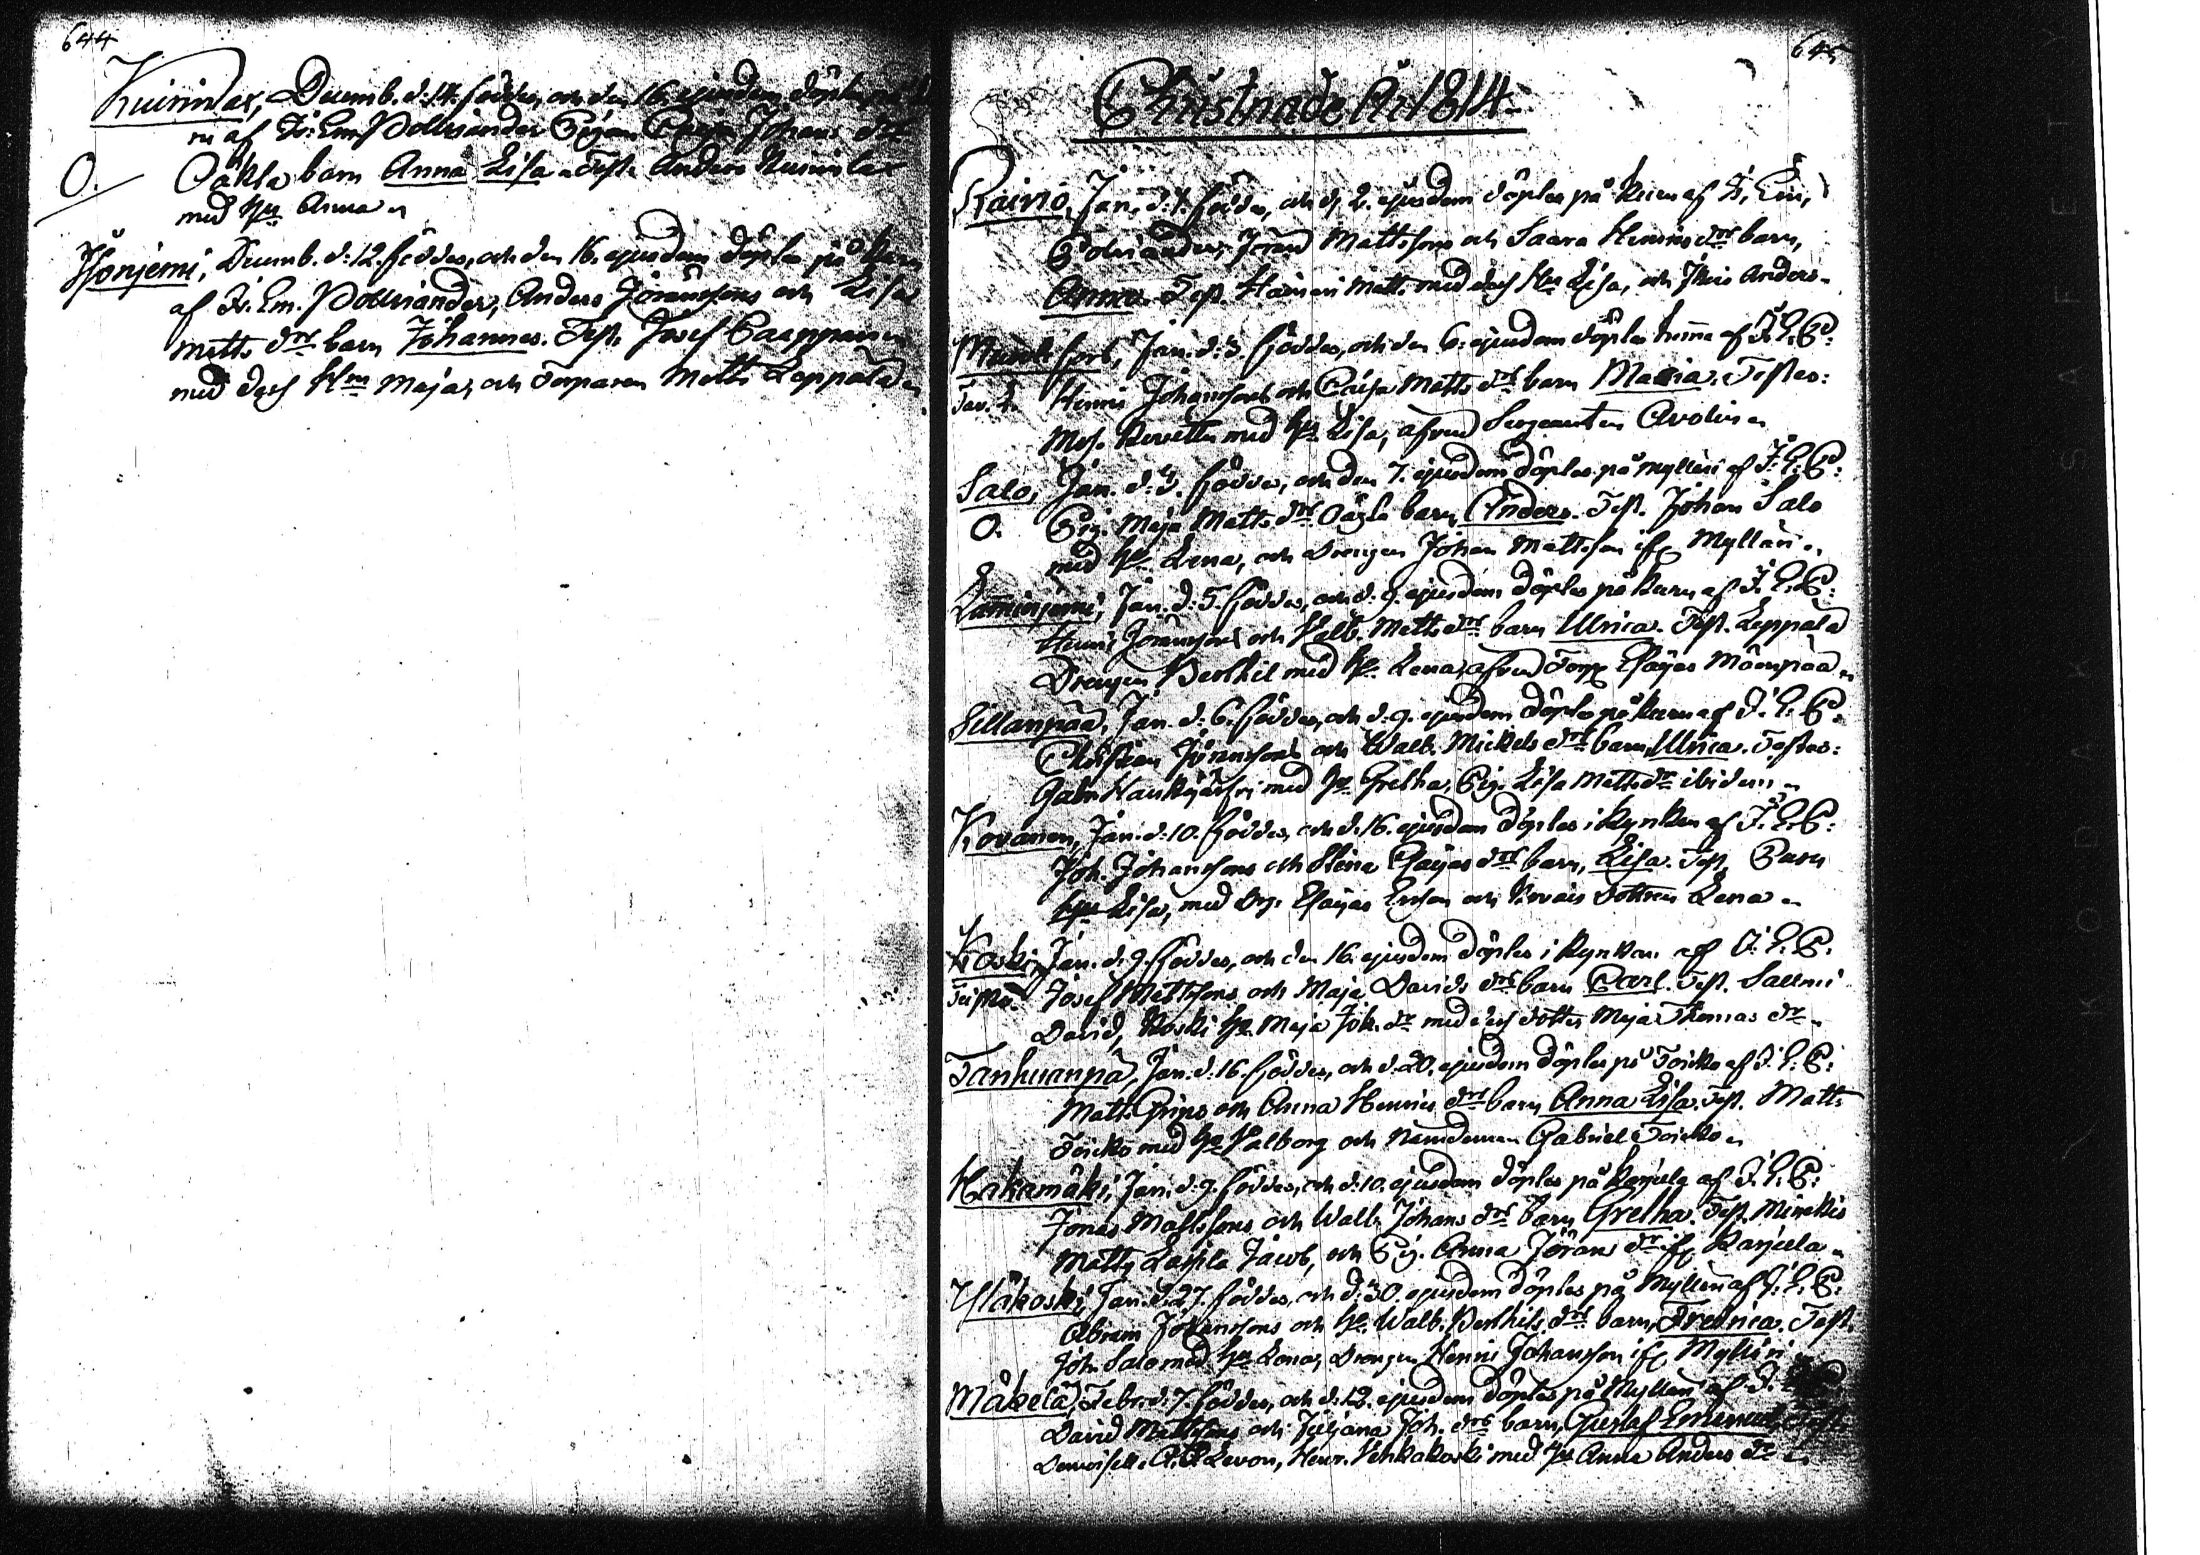 644
Kuirinlax, Decemb. d: 14. föddes, och den 16. ejusdem döptes
af Fr: Em. Polviander Pigan Johans dr
O. Oäkta barn Anna Lisa. Test. Anders
med hu Anna
Isonjemi, Decemb. d: 12. föddes, och den 16. ejusdem döptes på
af Fr. Em. Polviander, Anders Jöranssons och Lisa
Matts drs barn Johannes. Test. Josef
med dess Hu Maja, och Torparen Matts Leppälä
645
Christnade År 1814.
Rainio, Jan. d: 1. föddes, och d. 2. ejusdem döptes på af Fr. Em.
Polviander, Jöran Mattssons och Saara Henrics drs barn,
Anna. Test. Matts med dess Hu Lisa, och Anders
Jan. d: 3. föddes, och den 6. ejusdem döptes hema af F. E. P:
Henric Johanssons och Caisa Matts drs barn Maria. Testes:
med hu Lisa, afsked Sergeanten Avolin
Salo, Jan. d: 3. föddes, och den 7. ejusdem döptes på Mylläri af F: E: P:
O. Pig. Maja Matts drs Oägta barn, Anders. Test. Johan Salo
med hu Lena, och Drengen Johan Mattsson ifr Mylläri
Lamminjemi, Jan. d: 5. föddes, och d: 9. ejusdem döptes på af F. E. P:
Henric Jöranssons och Valb. Matts drs barn Ulrica. Test. Leppälä
Drengen Berthil med hu Lena, afsked Torp Esayas Mäenpää
Sillanpää, Jan. d: 6. föddes, och d: 9. ejusdem döptes på af F. E. P.
Christian Jöranssons och Walb. Mickels drs barn, Ulrica. Testes:
Gabr. Haukijärfvi med hu Gretha, Pig. Lisa Matts dr ibidem
Kovanen, Jan. d: 10. föddes, och d. 16. ejusdem döptes i Kyrkan af F. E. P:
Joh. Johanssons och Stina Esaijas drs barn, Lisa. Test.
hu Lisa, med Drg. Esaijas Ersson och dottren Lena
Koski, Jan. d. 9. föddes, och den 16. ejusdem döptes i Kyrkan af F. E. P:
Josef Mattssons och Maja Davids drs barn Carl. Test. Salmi
David, Koski hu Maja Joh. dr med dess dotter Maja Thomas dr
Tanhuanpä, Jan. d: 16. föddes, och d. 20. ejusdem döptes på Toicko af F. E. P:
Matts Grips och Anna Henrics drs barn Anna Lisa. Test. Matts
Toicko med hu Valborg och Nämdeman Gabriel Toicko
Hakamäki, Jan. d. 9. föddes, och d: 10. ejusdem döptes på Karjula af F. E. P:
Jonas Mattssons och Walb. Johans drs barn Gretha. Test.
Matts, Jacob, och Pig. Anna Jörans dr ifr Karjula
Yläkoski, Jan. d. 27. föddes, och d: 30. ejusdem döptes på Mylläri af F. E. P:
Abram Johanssons och hu. Walb. Berthils drs barn, Fredrica. Test.
Joh. Salo med hu Lena, Drengen Henric Johansson ifr Mylläri
Mäkelä, Febr. d. 7. föddes, och d: 12. ejusdem döptes på Mylläri af F.
David Mattssons och Juljana Joh. drs barn, Gustaf Emanuel. Test.
Demoiselle Levon, Henr. Vehkakoski med hu Anna Anders dr
KODAK SAFETY